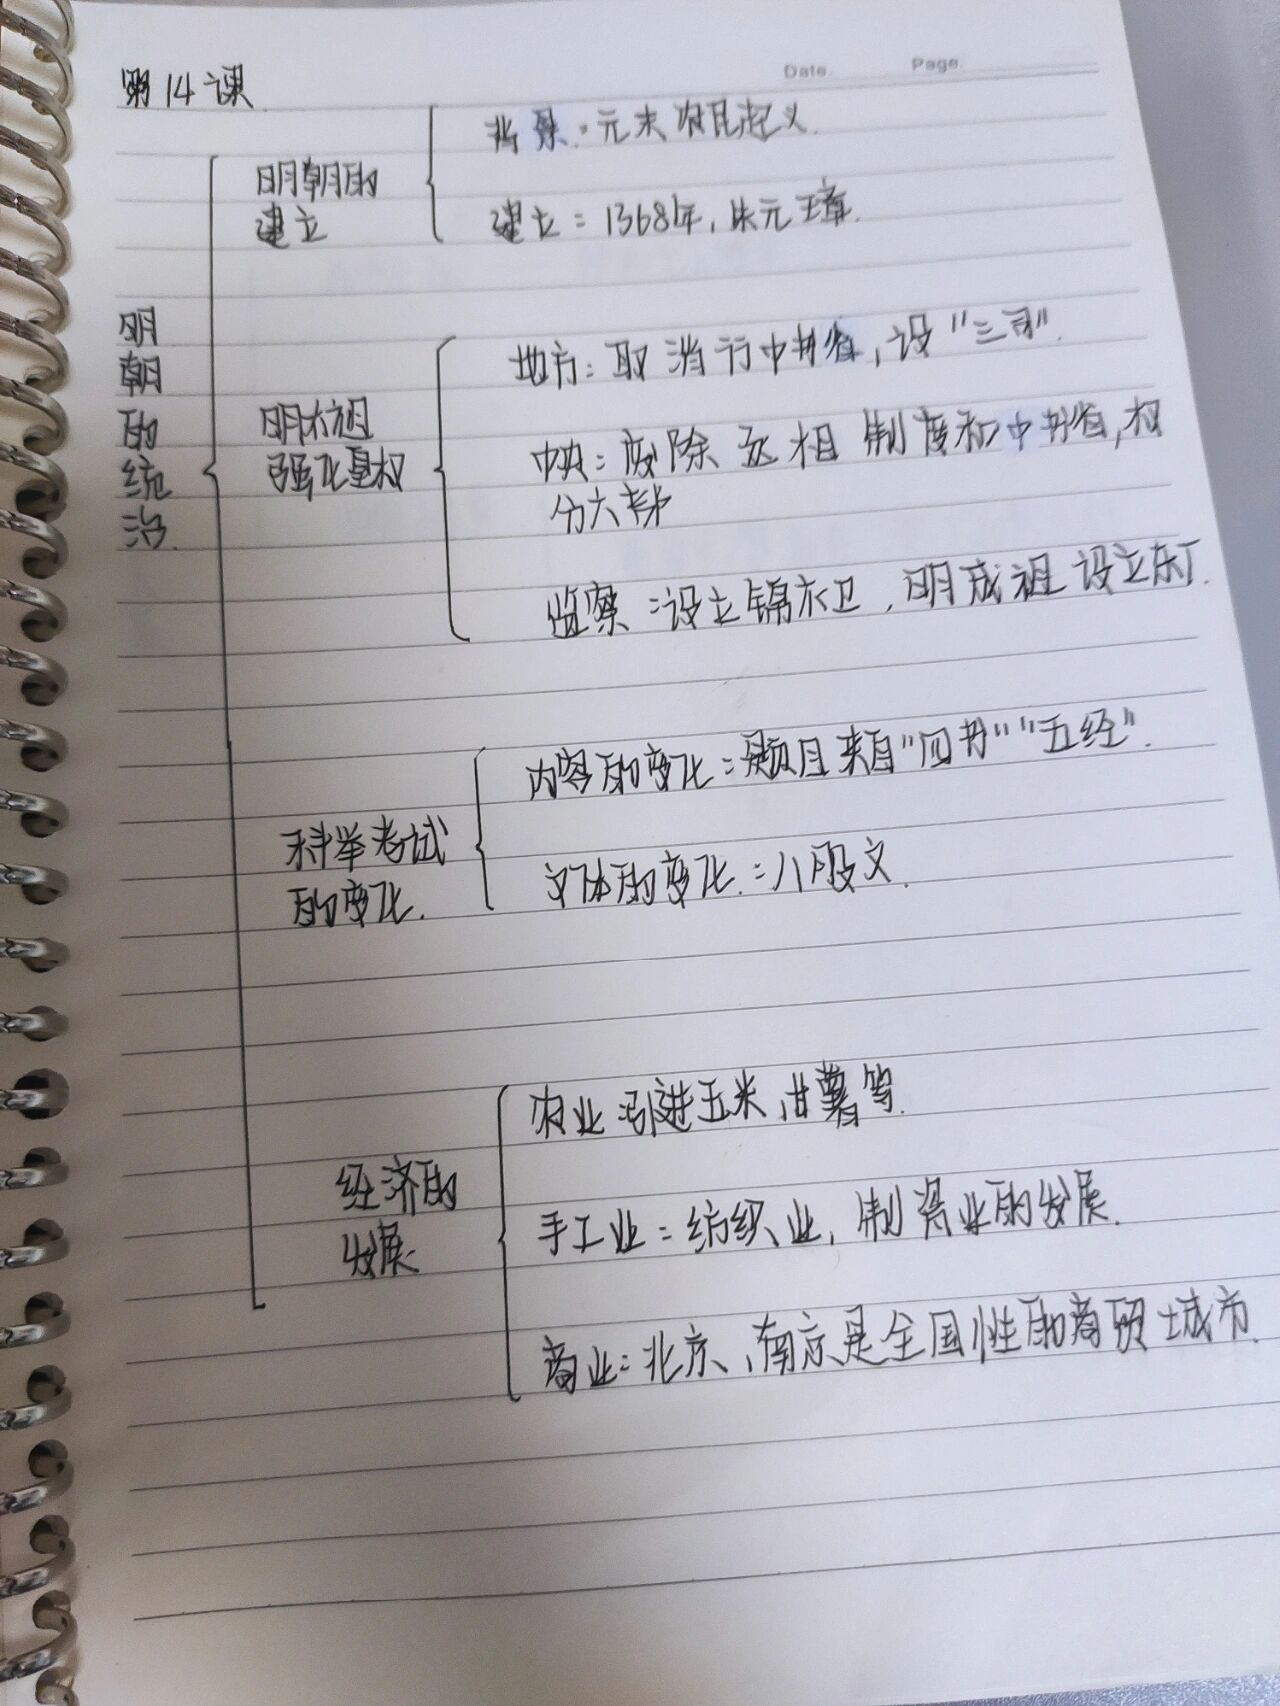 Date.
Page.
第14课
明朝的统治.
明朝的
建立
背景：元末农民起义.
建立：1368年，朱元璋.
明太祖
强化皇权
地方：取消行中书省，设“三司”.
中央：废除丞相制度和中书省，权
分六部
监察：设立锦衣卫，明成祖设立东厂.
科举考试
的变化.
内容的变化：题目来自“四书”“五经”.
文体的变化.：八股文.
经济的
发展
农业：引进玉米、甘薯等.
手工业：纺织业，制瓷业的发展.
商业：北京、南京是全国性的商贸城市.